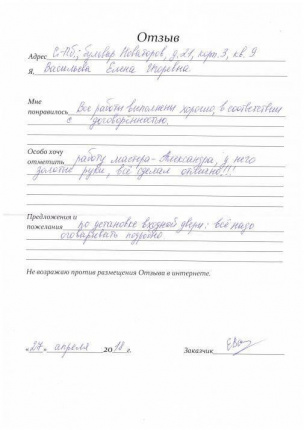 Отзыв
Адрес С-Пб; бульвар Новаторов, д.21, корп.3, кв. 9
Я, Васильева Елена Игоревна
Мне
понравилось Все работы выполнены хорошо, в соответствии
с договорённостью.
Особо хочу
отметить работу мастера - Александра, у него
золотые руки, всё сделал отлично!!!
Предложения и
пожелания по установке входной двери: всё надо
оговаривать подробно.
Не возражаю против размещения Отзыва в интернете.
«27» апреля 2018 г. Заказчик